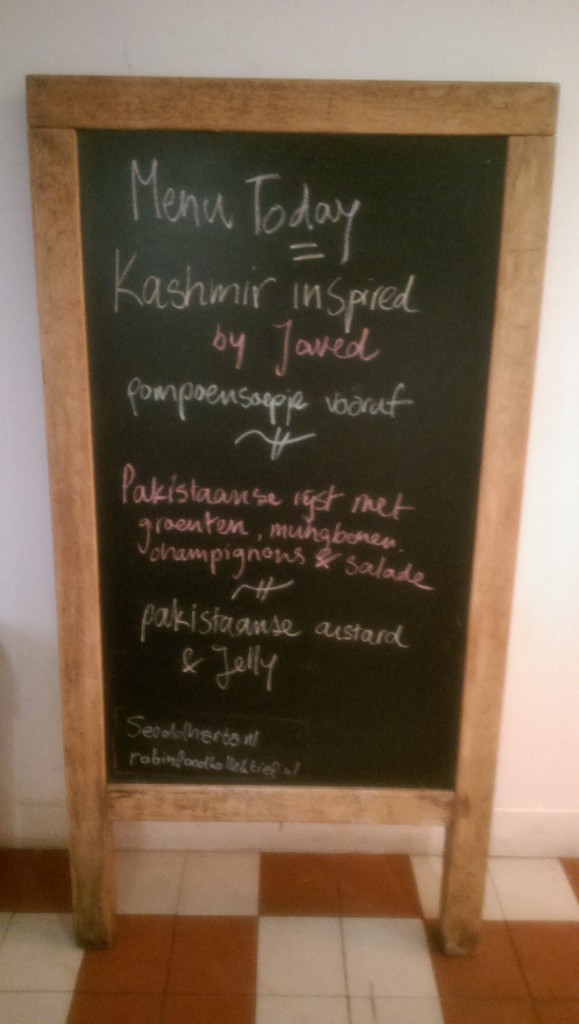 Menu Today
Kashmir inspired
by Javed
pompoensoepje vooraf
Pakistaanse rijst met
groenten, mungbonen.
champignons & salade
pakistaanse custard
& Jelly
robinfoodkollektief.nl